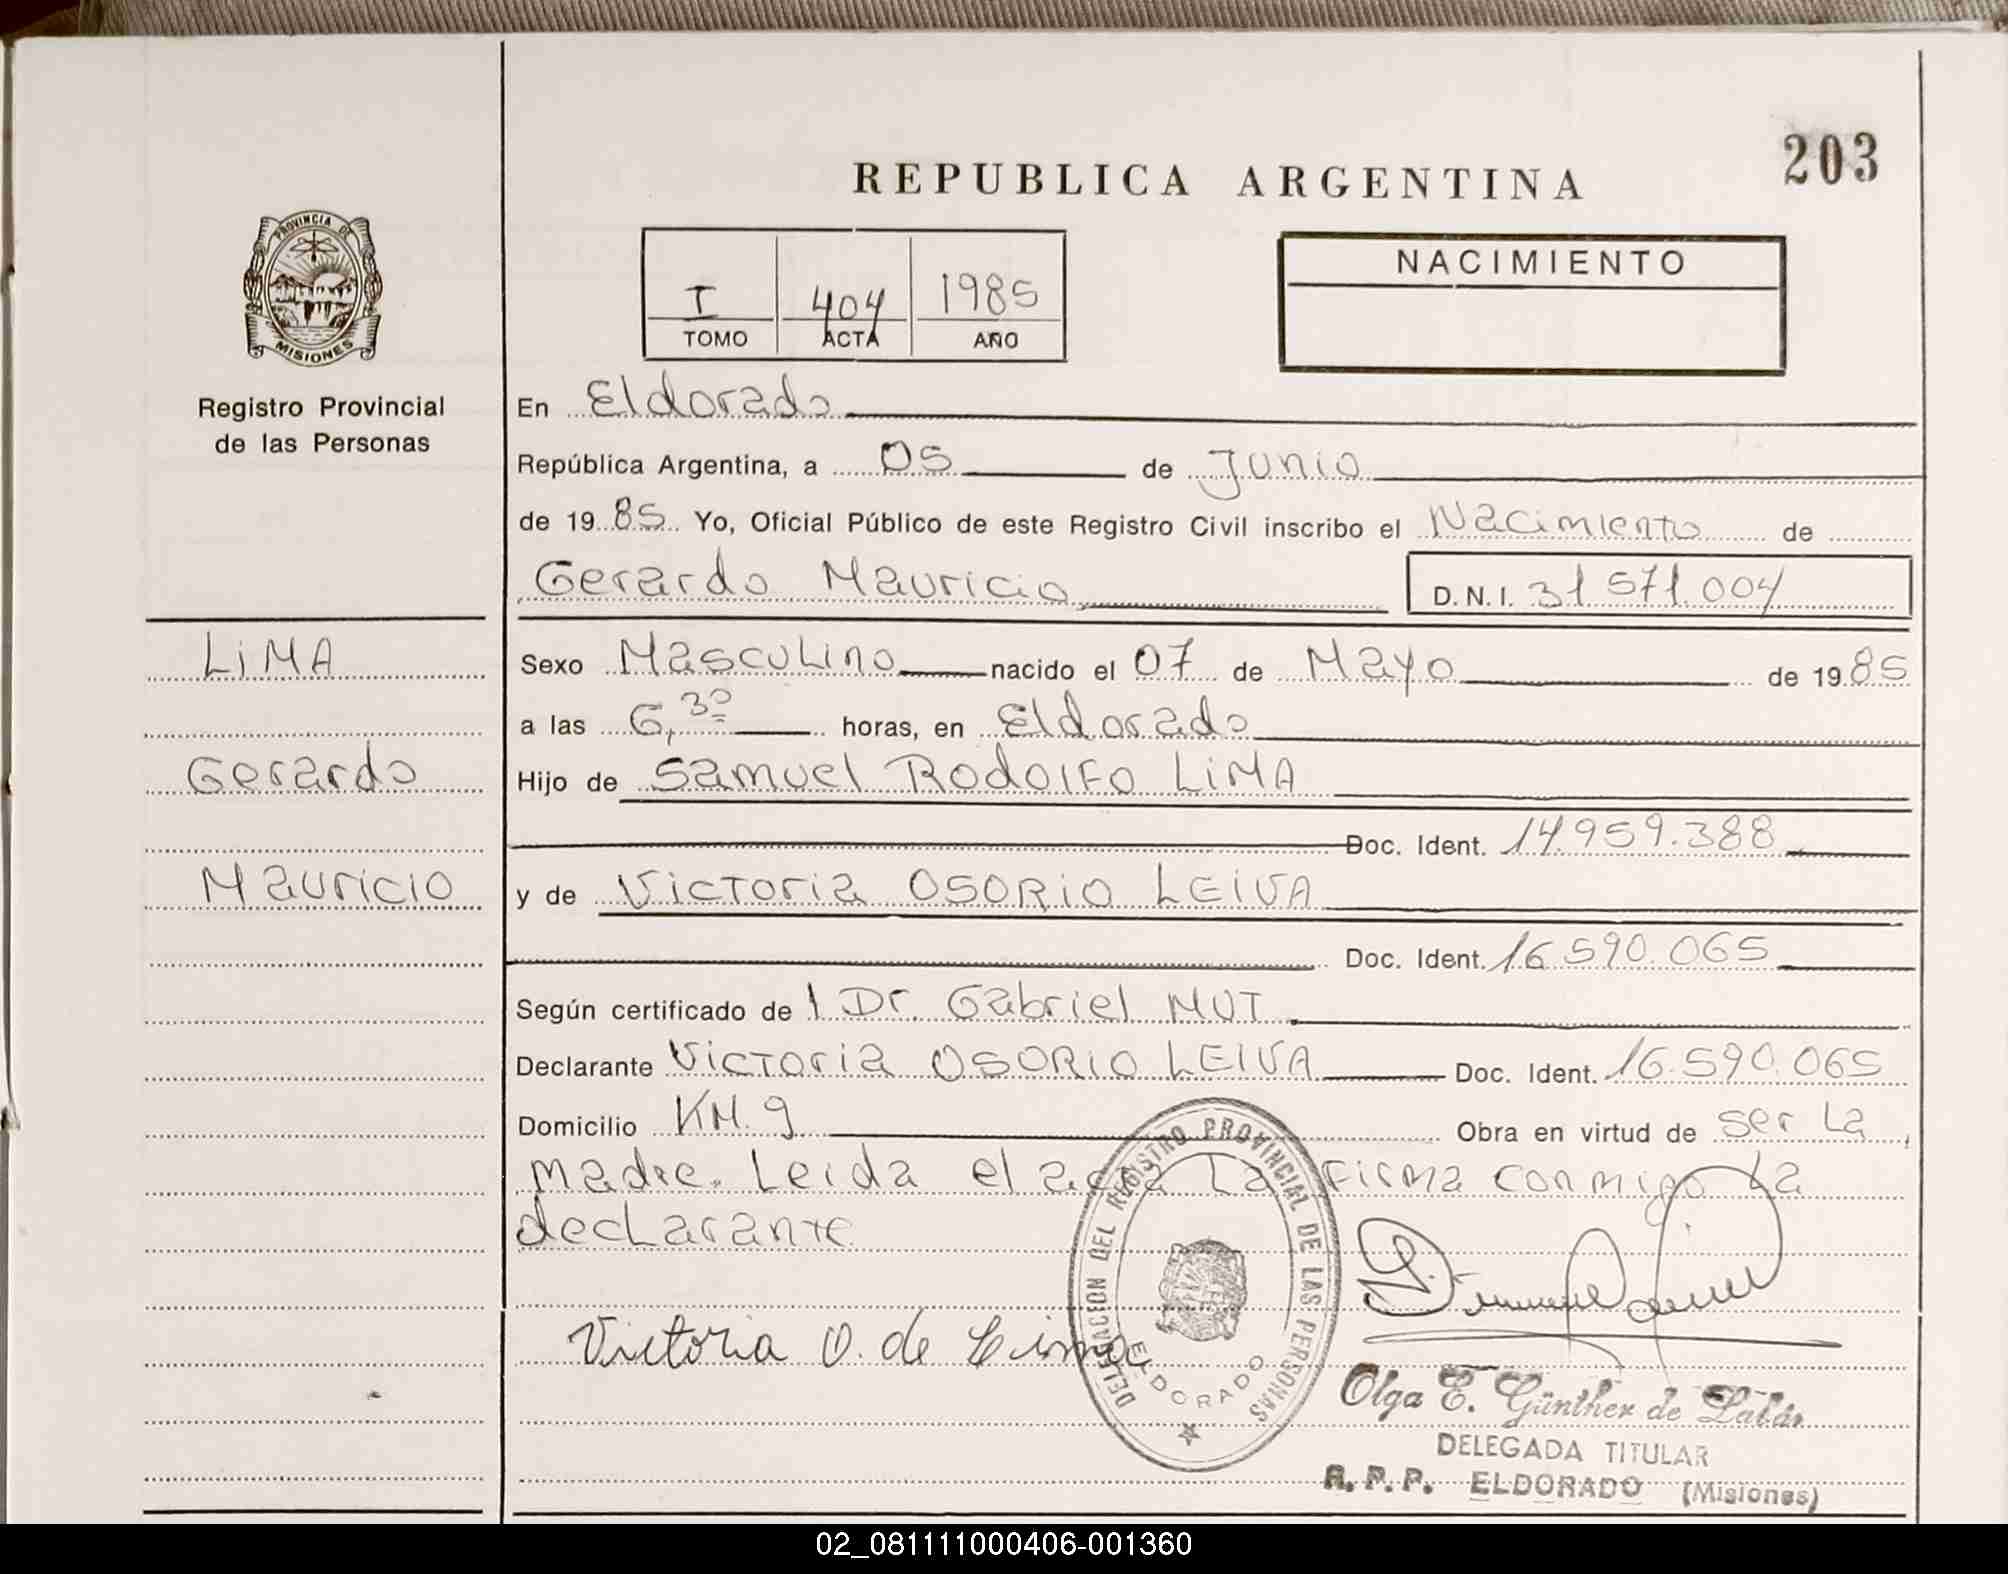 203
REPUBLICA ARGENTINA
PROVINCIA DE
MISIONES
Registro Provincial
de las Personas
I 404 1985
TOMO ACTA AÑO
NACIMIENTO
En Eldorado
República Argentina, a 05 de Junio
de 1985 Yo, Oficial Público de este Registro Civil inscribo el Nacimiento de
Gerardo Mauricio D.N.I. 31 571.004
LIMA
Gerardo
Mauricio
Sexo Masculino nacido el 07 de Mayo de 1985
a las 6,30 horas, en Eldorado
Hijo de Samuel Rodolfo LIMA
Doc. Ident. 14.959.388
y de Victoria OSORIO LEIVA
Doc. Ident. 16.590.065
Según certificado de 1 Dr. Gabriel MUT
Declarante Victoria OSORIO LEIVA Doc. Ident. 16.590.065
Domicilio KM. 9 Obra en virtud de ser la
madre. Leida el acta la firma conmigo la
declarante
Victoria O. de Lima
DELEGACION DEL REGISTRO PROVINCIAL DE LAS PERSONAS
ELDORADO
Olga E. Günther de
DELEGADA TITULAR
R. P. P. ELDORADO (Misiones)
02_081111000406-001360